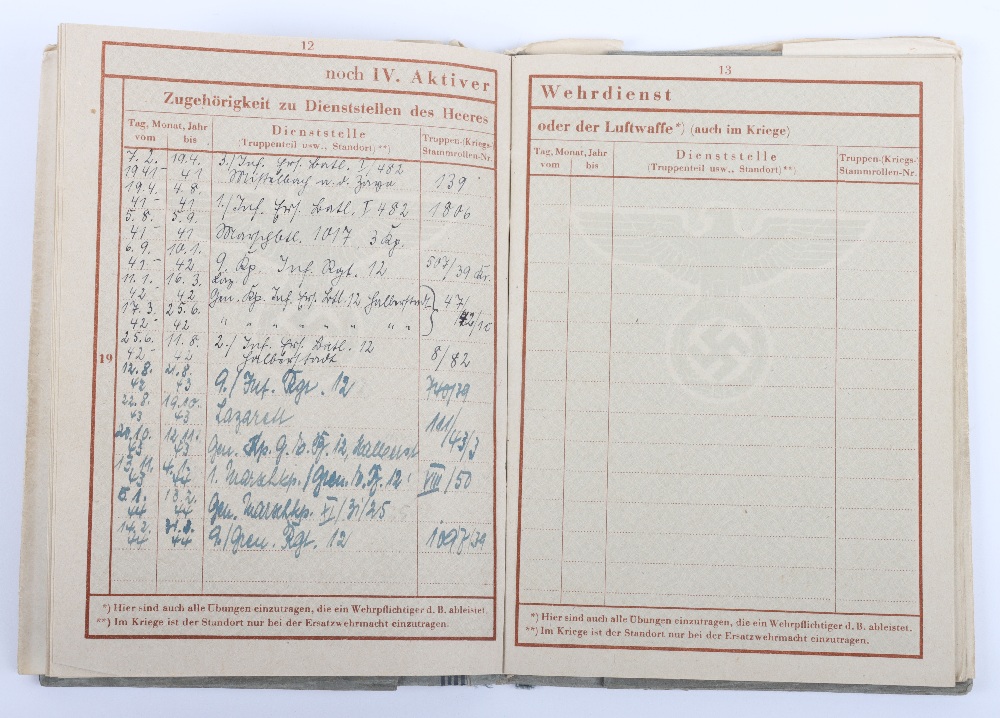 12
noch IV. Aktiver
Zugehörigkeit zu Dienststellen des Heeres
Tag, Monat, Jahr
vom bis
Dienststelle
(Truppenteil usw., Standort)**)
Truppen-(Kriegs-)
Stammrollen-Nr.
7.2. 19.4. 3./Inf. Ers. Batl. I/482
1941– 41 Mistelbach a.d. Zaya 139
19.4. 4.8.
41– 41 1./Inf. Ers. Batl. I 482 1806
5.8. 5.9.
41– 41 Marschbtl. 1017, 3 Kp.
6.9. 10.1.
41– 42 9. Kp. Inf. Rgt. 12 507/39 Kr.
11.1. 16.3.
42– 42 Gen. Kp. Inf. Ers. Btl. 12 Halberstadt 47/
17.3. 25.6.
42– 42 " " " " " " "
25.6. 11.8. 2./Inf. Ers. Batl. 12
42– 42 Halberstadt 8/82
19
12.8.
42 43 9./Inf. Rgt. 12
22.8. 19.10.
43 43 Lazarett 111/43/3
20.10. 12.11.
43 43 Gen. Kp. G.
13.11.
43 44 1. Marschkp./Gren. 12 VIII/50
13.2.
44 44 Gen. Marschkp. XI/31/25
14.2.
44 44 9./Gren. Rgt. 12
*) Hier sind auch alle Übungen einzutragen, die ein Wehrpflichtiger d. B. ableistet.
**) Im Kriege ist der Standort nur bei der Ersatzwehrmacht einzutragen.
13
Wehrdienst
oder der Luftwaffe*) (auch im Kriege)
Tag, Monat, Jahr
vom bis
Dienststelle
(Truppenteil usw., Standort)**)
Truppen-(Kriegs-)
Stammrollen-Nr.
*) Hier sind auch alle Übungen einzutragen, die ein Wehrpflichtiger d. B. ableistet.
**) Im Kriege ist der Standort nur bei der Ersatzwehrmacht einzutragen.